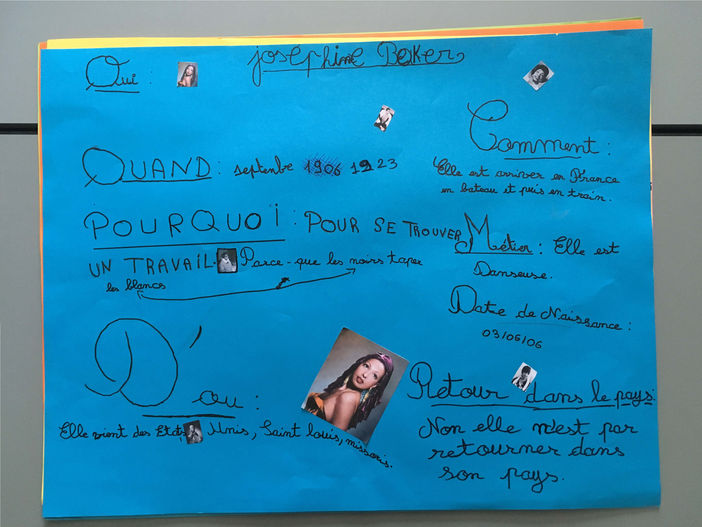 joséphine Baker
Oui :
QUAND : septembre 1906 1923
POURQUOI : POUR SE TROUVER
UN TRAVAIL. Parce-que les noirs taper
les blancs
D'ou :
Elle vient des Etats Unis, Saint louis, missoris.
Comment :
Elle est arriver en France
en bateau et puis en train.
Métier : Elle est
Danseuse.
Date de Naissance :
03/06/06
Retour dans le pays :
Non elle n'est par
retourner dans
son pays.